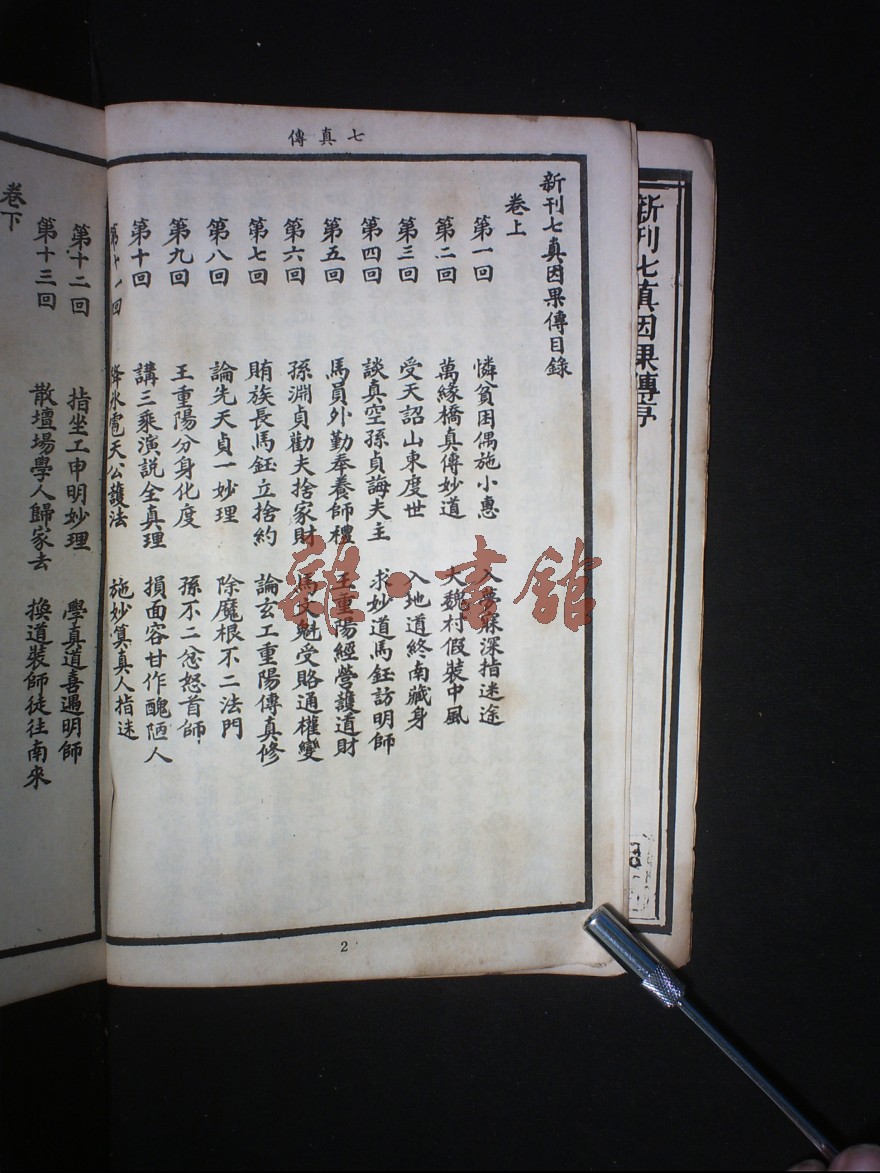 七真傳
新刊七真因果傳目錄
卷上
第一回 憐貧困偶施小惠 入夢寐深指迷途
第二回 萬緣橋真傳妙道 大魏村假裝中風
第三回 受天詔山東度世 入地道終南藏身
第四回 談真空孫貞誨夫主 求妙道馬鈺訪明師
第五回 馬員外勤奉養師禮 王重陽經營護道財
第六回 孫淵貞勸夫捨家財 馬文魁受賂通權變
第七回 賄族長馬鈺立捨約 論玄工重陽傳真修
第八回 論先天貞一妙理 除魔根不二法門
第九回 王重陽分身化度 孫不二忿怒首師
第十回 講三乘演說全真理 損面容甘作醜陋人
第十一回 降冰雹天公護法 施妙算真人指迷
第十二回 指坐工申明妙理 學真道喜遇明師
第十三回 散壇場學人歸家去 換道裝師徒往南來
卷下
2
新刊七真因果傳序
雜·書館